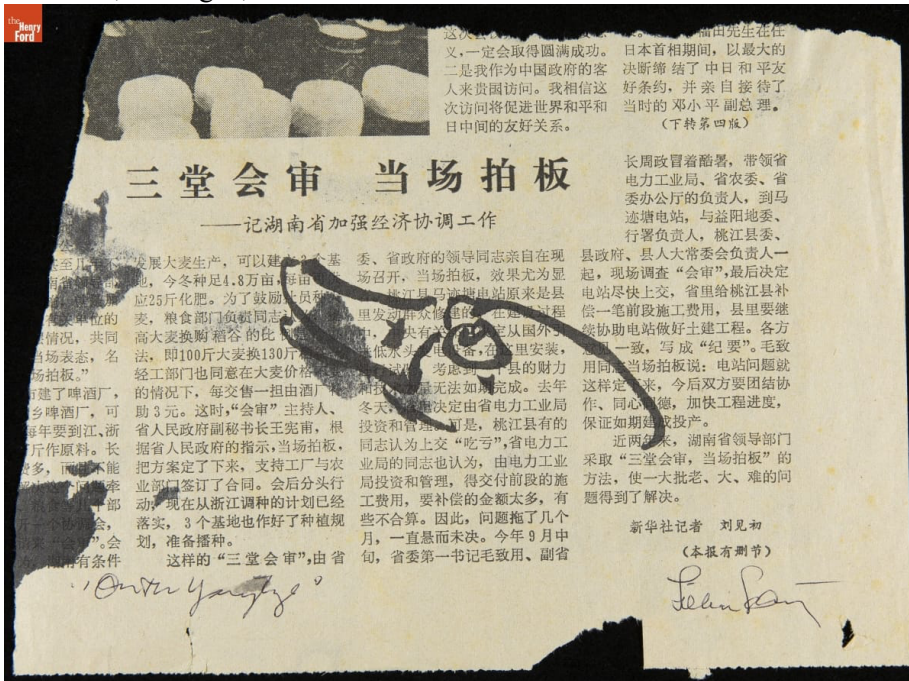 the Henry Ford
义，一定会取得圆满成功。
二是我作为中国政府的客
人来贵国访问。我相信这
次访问将促进世界和平和
日中间的友好关系。
福田先生在任
日本首相期间，以最大的
决断缔结了中日和平友
好条约，并亲自接待了
当时的邓小平副总理。
（下转第四版）
三堂会审 当场拍板
——记湖南省加强经济协调工作
单位的
情况，共同
当场表态，名
场拍板。”
建了啤酒厂，
乡啤酒厂，可
每年要到江、浙
斤作原料。长
多，而且不能
会
有条件
发展大麦生产，可以建立3个基
地，今冬种足4.8万亩，每亩
应25斤化肥。为了鼓励社员种
麦，粮食部门负责同志
高大麦换购稻谷的比
法，即100斤大麦换130斤
轻工部门也同意在大麦价格
的情况下，每交售一担由酒厂
助3元。这时，“会审”主持人、
省人民政府副秘书长王宪审，根
据省人民政府的指示，当场拍板，
把方案定了下来，支持工厂与农
业部门签订了合同。会后分头行
动，现在从浙江调种的计划已经
落实，3个基地也作好了种植规
划，准备播种。
这样的“三堂会审”，由省
委、省政府的领导同志亲自在现
场召开，当场拍板，效果尤为显
桃江县马迹塘电站原来是县
里发动群众修建的。在建设过程
中，中央有关 定从国外引
进低水头发电设备，在这里安装，
考虑到 县的财力
和技术力量无法如期完成。去年
冬天，省里决定由省电力工业局
投资和管理。可是，桃江县有的
同志认为上交“吃亏”，省电力工
业局的同志也认为，由电力工业
局投资和管理，得交付前段的施
工费用，要补偿的金额太多，有
些不合算。因此，问题拖了几个
月，一直悬而未决。今年9月中
旬，省委第一书记毛致用、副省
长周政冒着酷暑，带领省
电力工业局、省农委、省
委办公厅的负责人，到马
迹塘电站，与益阳地委、
行署负责人，桃江县委、
县政府、县人大常委会负责人一
起，现场调查“会审”，最后决定
电站尽快上交，省里给桃江县补
偿一笔前段施工费用，县里要继
续协助电站做好土建工程。各方
意见一致，写成“纪要”。毛致
用同志当场拍板说：电站问题就
这样定下来，今后双方要团结协
作、同心同德，加快工程进度，
保证如期建成投产。
近两年来，湖南省领导部门
采取“三堂会审，当场拍板”的
方法，使一大批老、大、难的问
题得到了解决。
新华社记者 刘见初
（本报有删节）
"On the Yangtze"